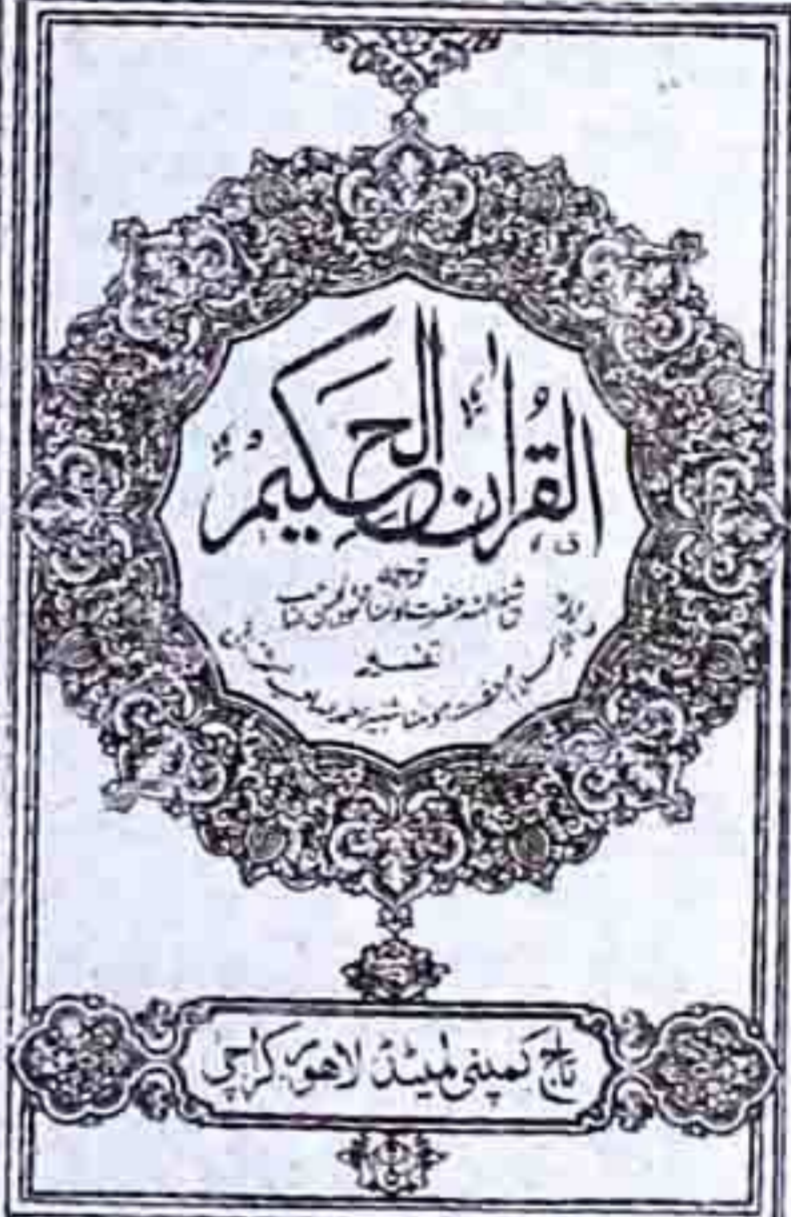 القُرآن الحکیمُ
ترجمہ
شیخ الہند حضرت مولانا محمود الحسن صاحب
تفسیر
حضرت مولانا شبیر احمد صاحب
تاج کمپنی لمیٹڈ لاهور کراچی